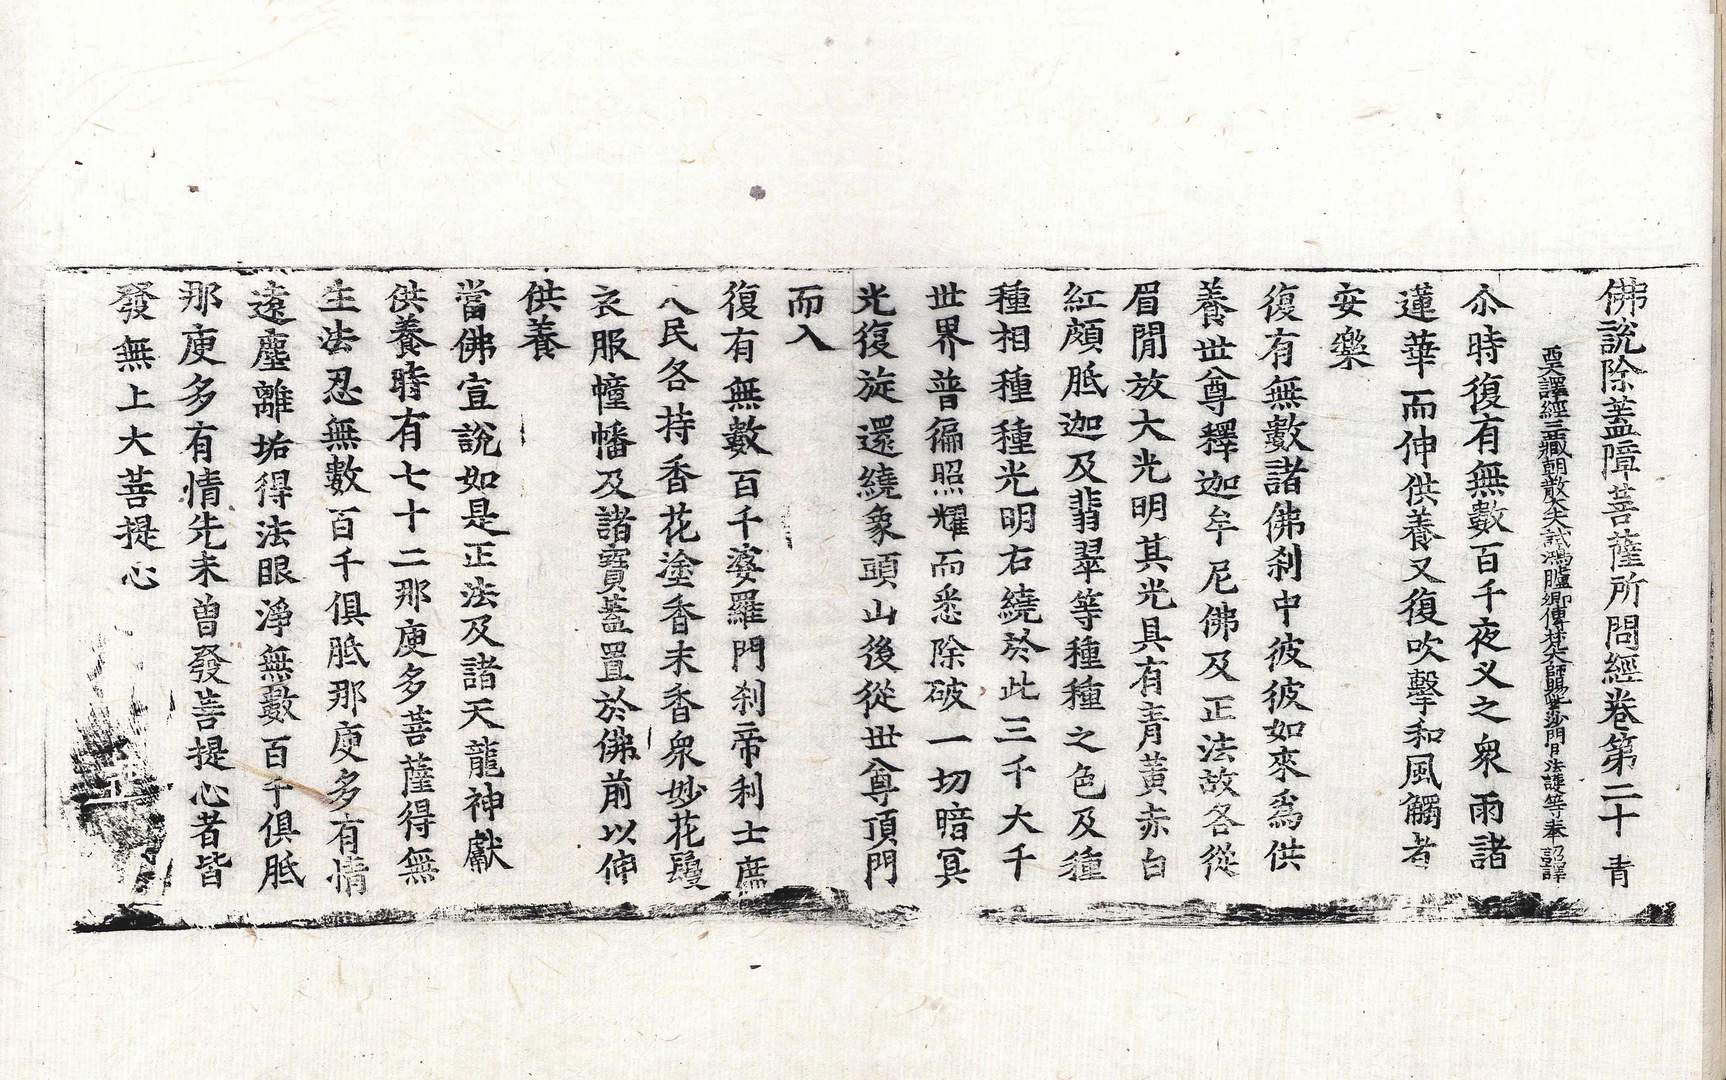 佛說除蓋障菩薩所問經卷第二十　青
譯經三藏朝散大夫試鴻臚卿傳梵大師賜紫沙門臣法護等奉　詔譯
尒時復有無數百千夜叉之衆雨諸
蓮華而伸供養又復吹擊和風觸者
安樂
復有無數諸佛剎中彼彼如來爲供
養世尊釋迦牟尼佛及正法故各從
眉閒放大光明其光具有青黃赤白
紅頗胝迦及翡翠等種種之色及種
種相種種光明右繞於此三千大千
世界普徧照耀而悉除破一切暗冥
光復旋還繞象頭山後從世尊頂門
而入
復有無數百千婆羅門剎帝利士庶
人民各持香花塗香末香衆妙花鬘
衣服幢幡及諸寶蓋置於佛前以伸
供養
當佛宣說如是正法及諸天龍神獻
供養時有七十二那庾多菩薩得無
生法忍無數百千俱胝那庾多有情
遠塵離垢得法眼淨無數百千俱胝
那庾多有情先未曾發菩提心者皆
發無上大菩提心